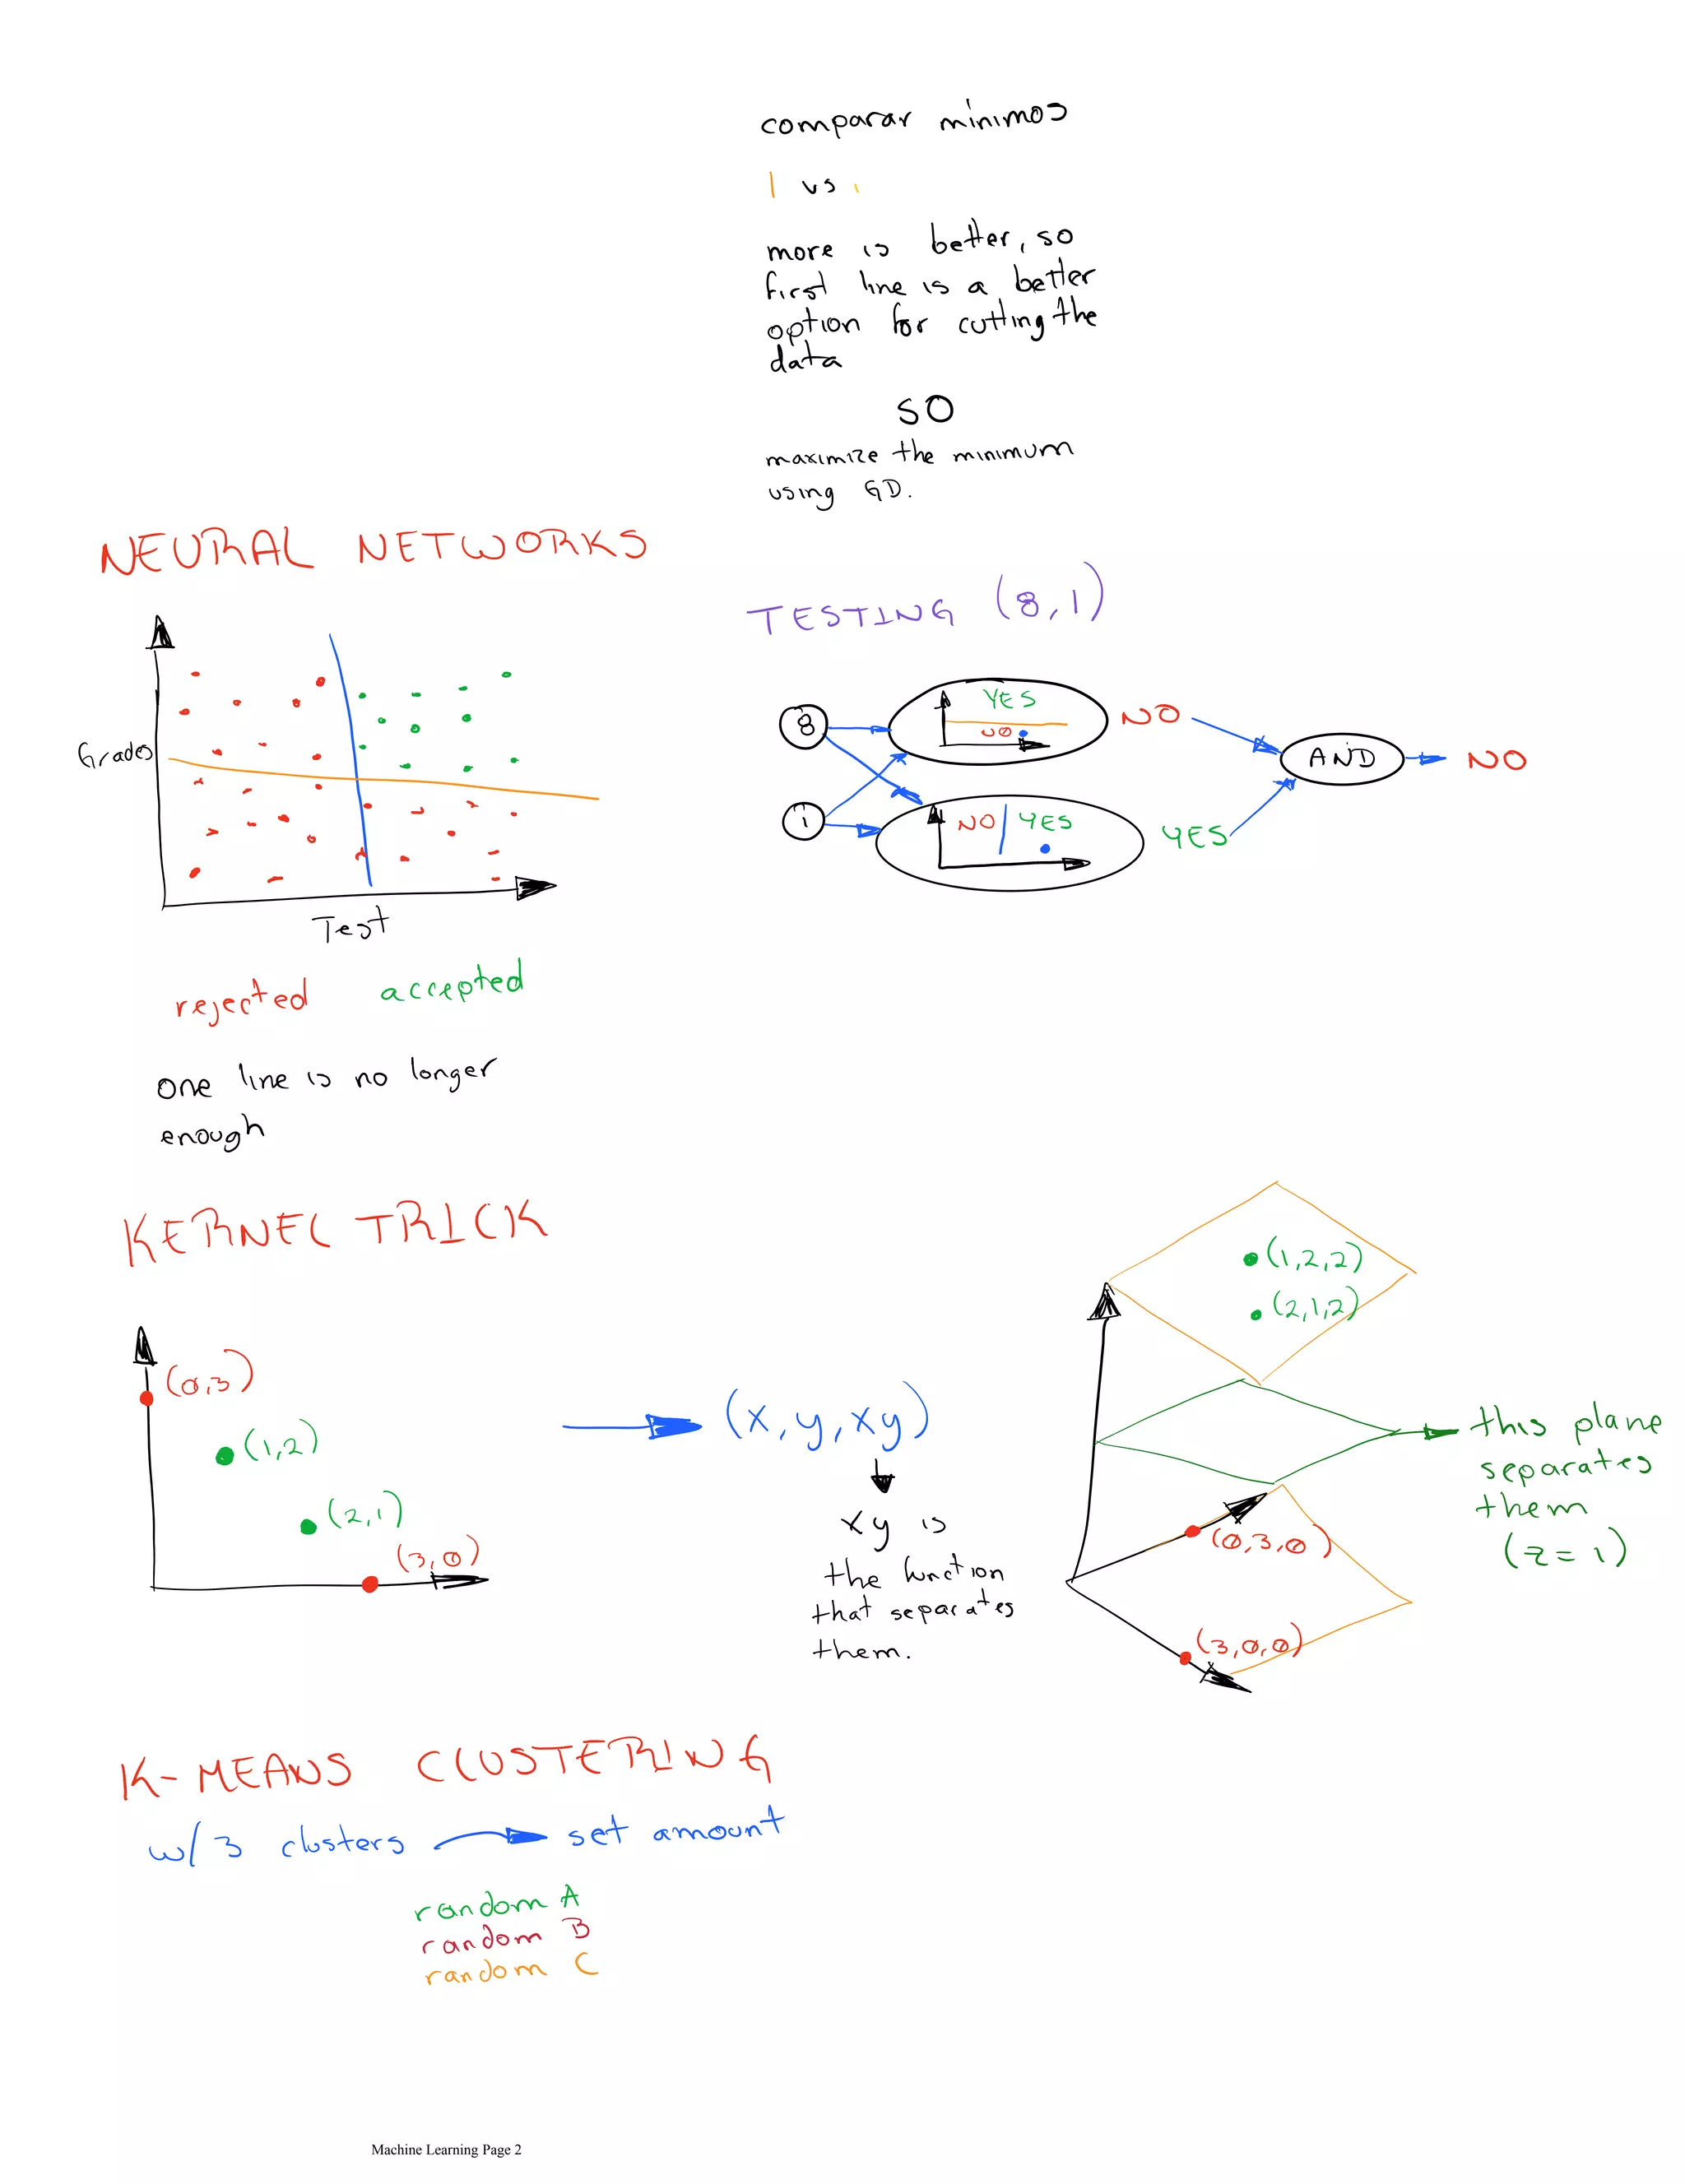 comparar minimos
| vs |
more is better, so
first line is a better
option for cutting the
data
SO
maximize the minimum
using GD.
NEURAL NETWORKS
TESTING (8,1)
Grades
Test
8
1
YES
NO
NO
NO YES
YES
AND
NO
rejected accepted
one line is no longer
enough
KERNEL TRICK
(0,3)
(1,2)
(2,1)
(3,0)
(x, y, xy)
xy is
the function
that separates
them.
(1,2,2)
(2,1,2)
this plane
separates
them
(z = 1)
(0,3,0)
(3,0,0)
K-MEANS CLUSTERING
w/ 3 clusters set amount
random A
random B
random C
Machine Learning Page 2